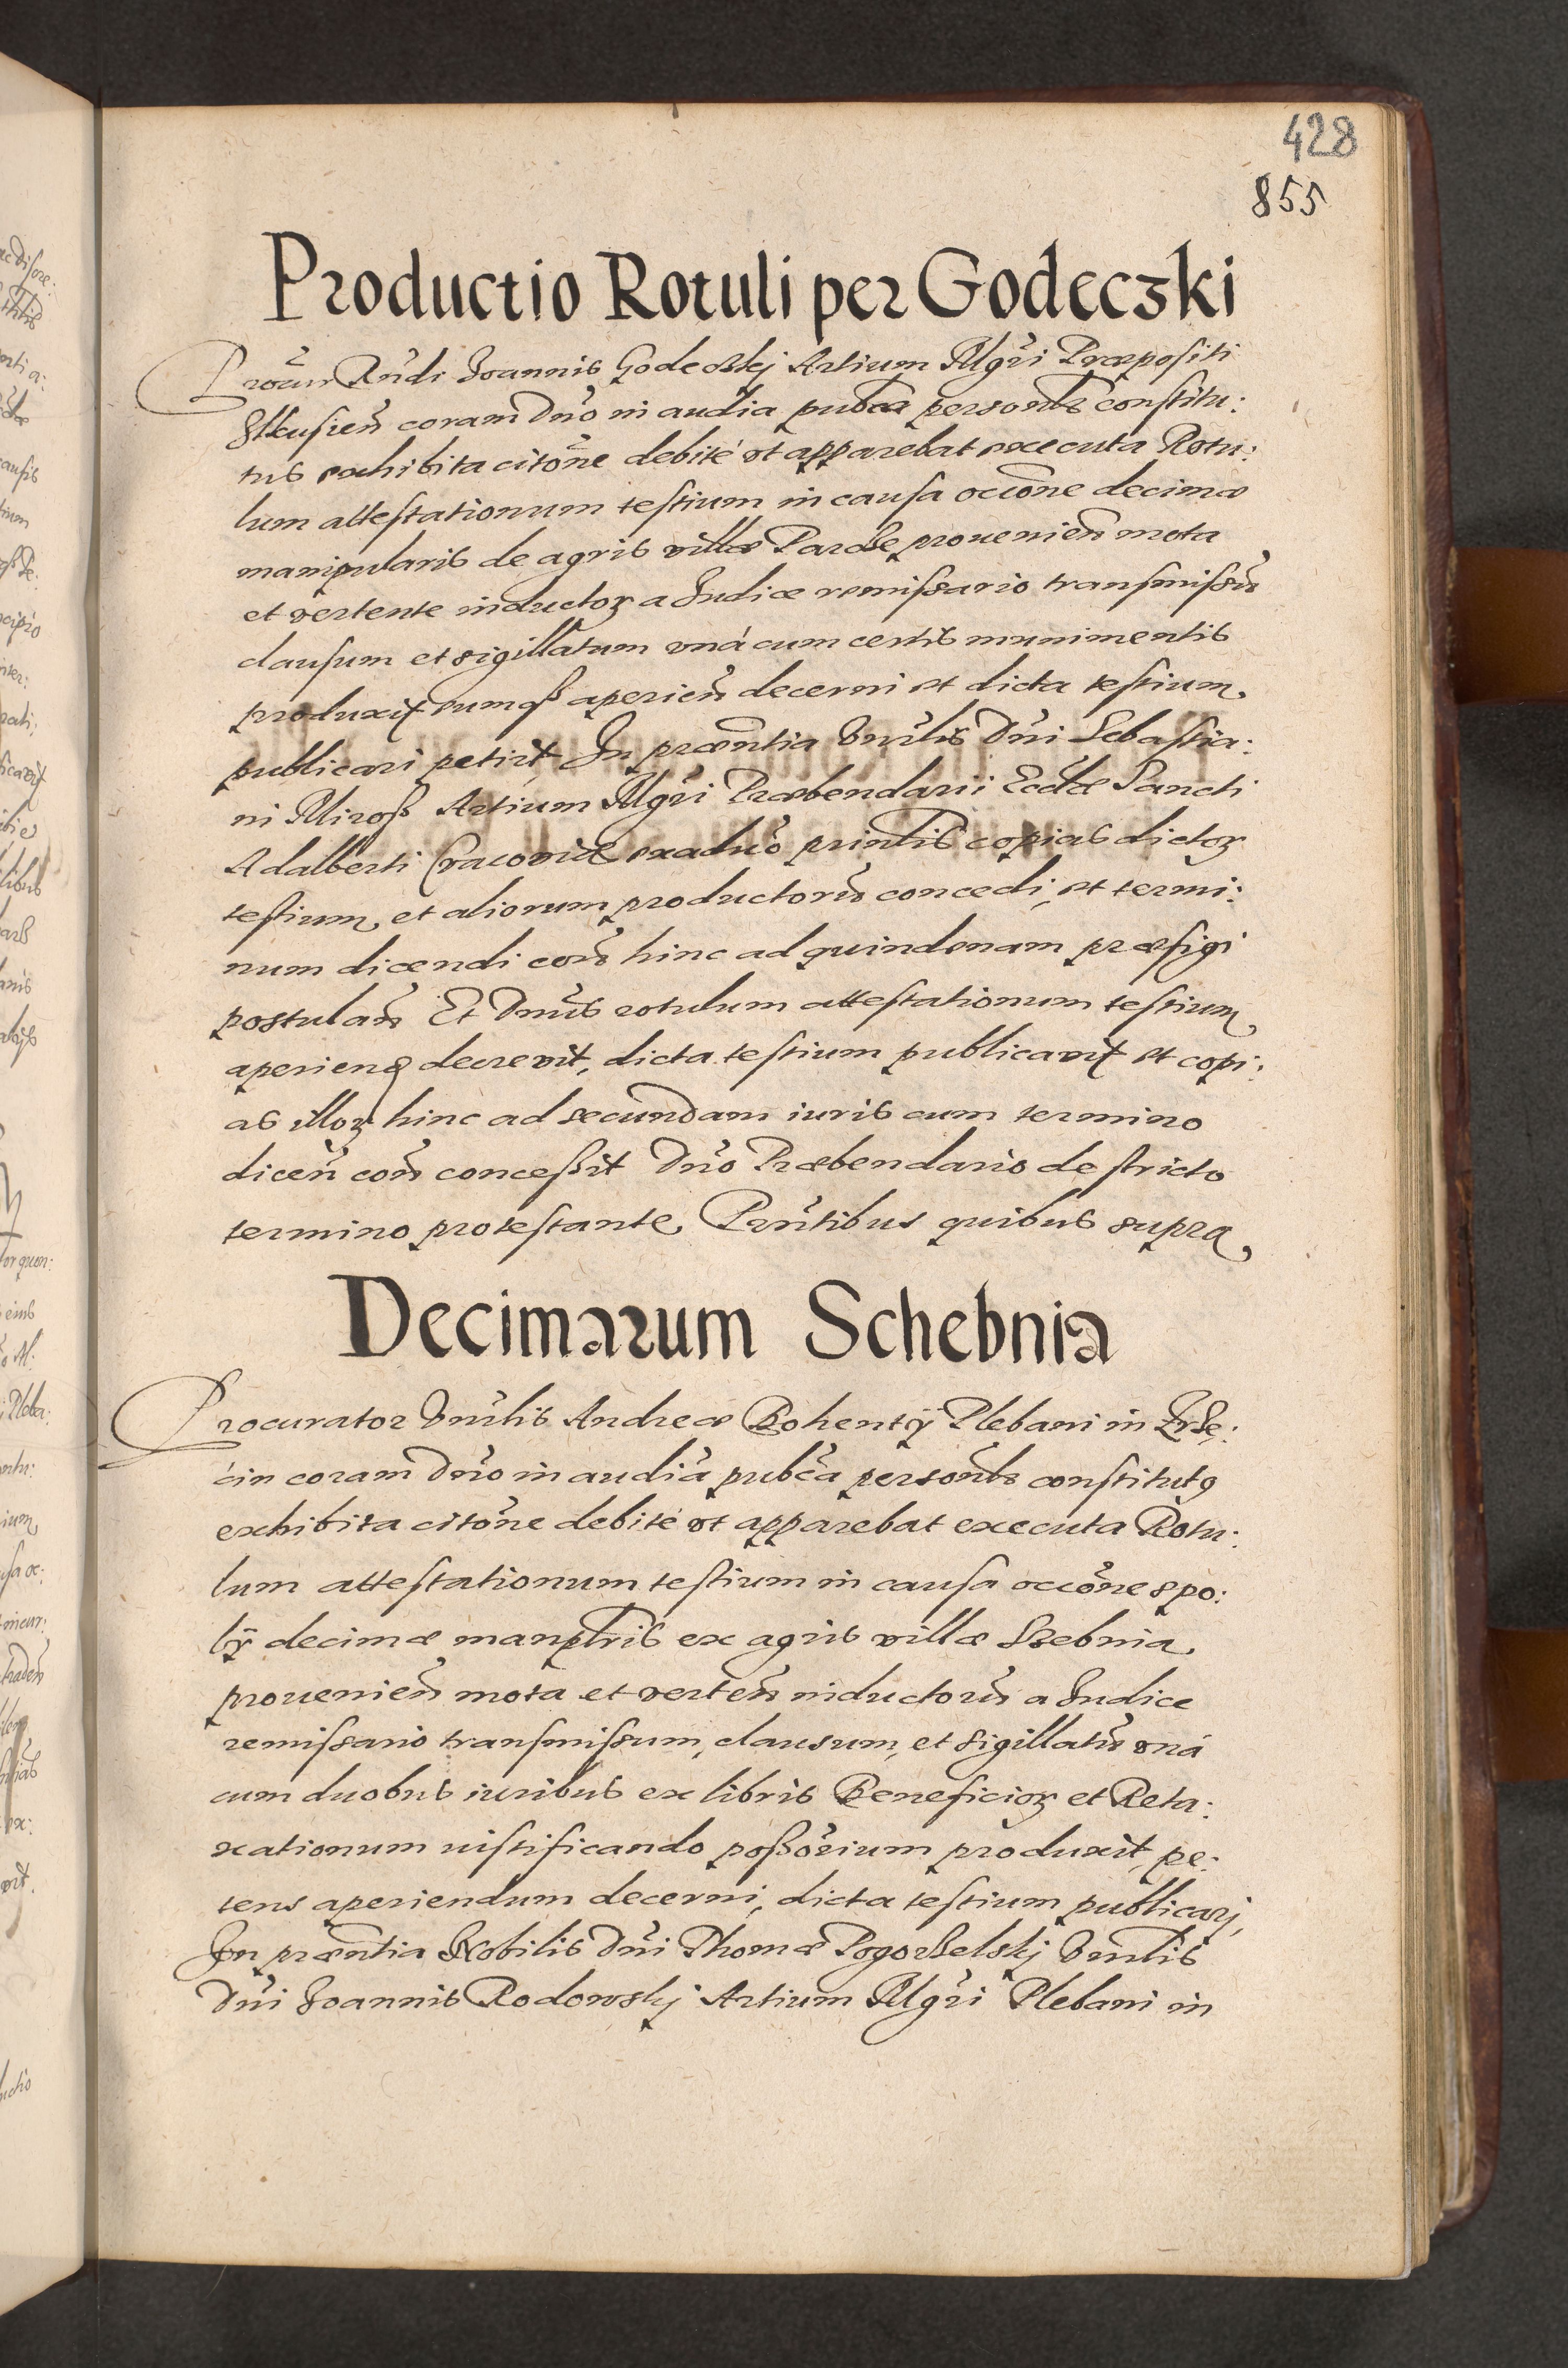 428
855
Productio Rotuli per Godeczki
Procur Rndi Joannis Godeczkj Artium Mgri Præpositi
Ilkusien coram Dno in audia pubca personlr constitu:
tus exhibita citone debité vt apparebat executa Rotu:
lum attestationum testium in causa occone decimæ
manipularis de agris villæ prouenien mota
et vertente inductoꝝ a Iudice remissario transmissū
clausum et sigillatum vná cum certis munimentis
produxit eumqꝫ aperien decerni et dicta testium
publicari petiit, In præntia Vnrlis Dni Sebastia:
ni Mirosz Artium Mgri Præbendarii Eccliæ Sancti
Adalberti Cracoviæ exaduo printis copias dictoꝝ
testium et aliorum productorū concedi, et termi:
num dicendi con hinc ad quindenam præfigi
postulan Et Dnus rotulum attestationum testium
aperiend decrevit, dicta testium publicavit et copi:
as illoꝝ hinc ad secundam iuris cum termino
dicen con concessit Dno Præbendario de stricto
termino protestante Prntibus quibus supra,
Decimarum Schebnia
Procurator Vnrlis Andreæ Bohentij Plebani in
cin coram Dno in audia pubca personlr constitutꝰ
exhibita citone debité vt apparebat executa Rotu:
lum attestationum testium in causa occone spo:
lij decimæ manplris ex agris villæ Szebnia
prouenien mota et verten inductorū a Iudice
remissario transmissum, clausum, et sigillatū vná
cum duobus iuribus ex libris Beneficioꝝ et Reta:
xationum iustificando possorium produxit, pe:
tens aperiendum decerni, dicta testium publicarj,
In præntia Nobilis Dni Thomæ Pogorzelskj Vnrlis
Dni Joannis Rodowskj Artium Mgri Plebani in